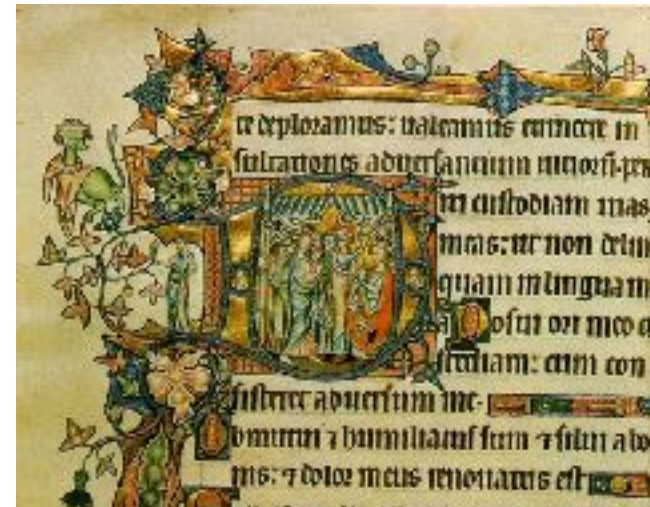 te deploramus: ualeamus euincere in
sultationes aduersantium uitiorū. per
ixi custodiam uias
meas: ut non delin
quam in lingua m
a Posui ori meo c
stodiam: cum con
sisteret aduersum me.
Obmutui ⁊ humiliatus sum ⁊ silui a bo
nis: ⁊ dolor meus renouatus est